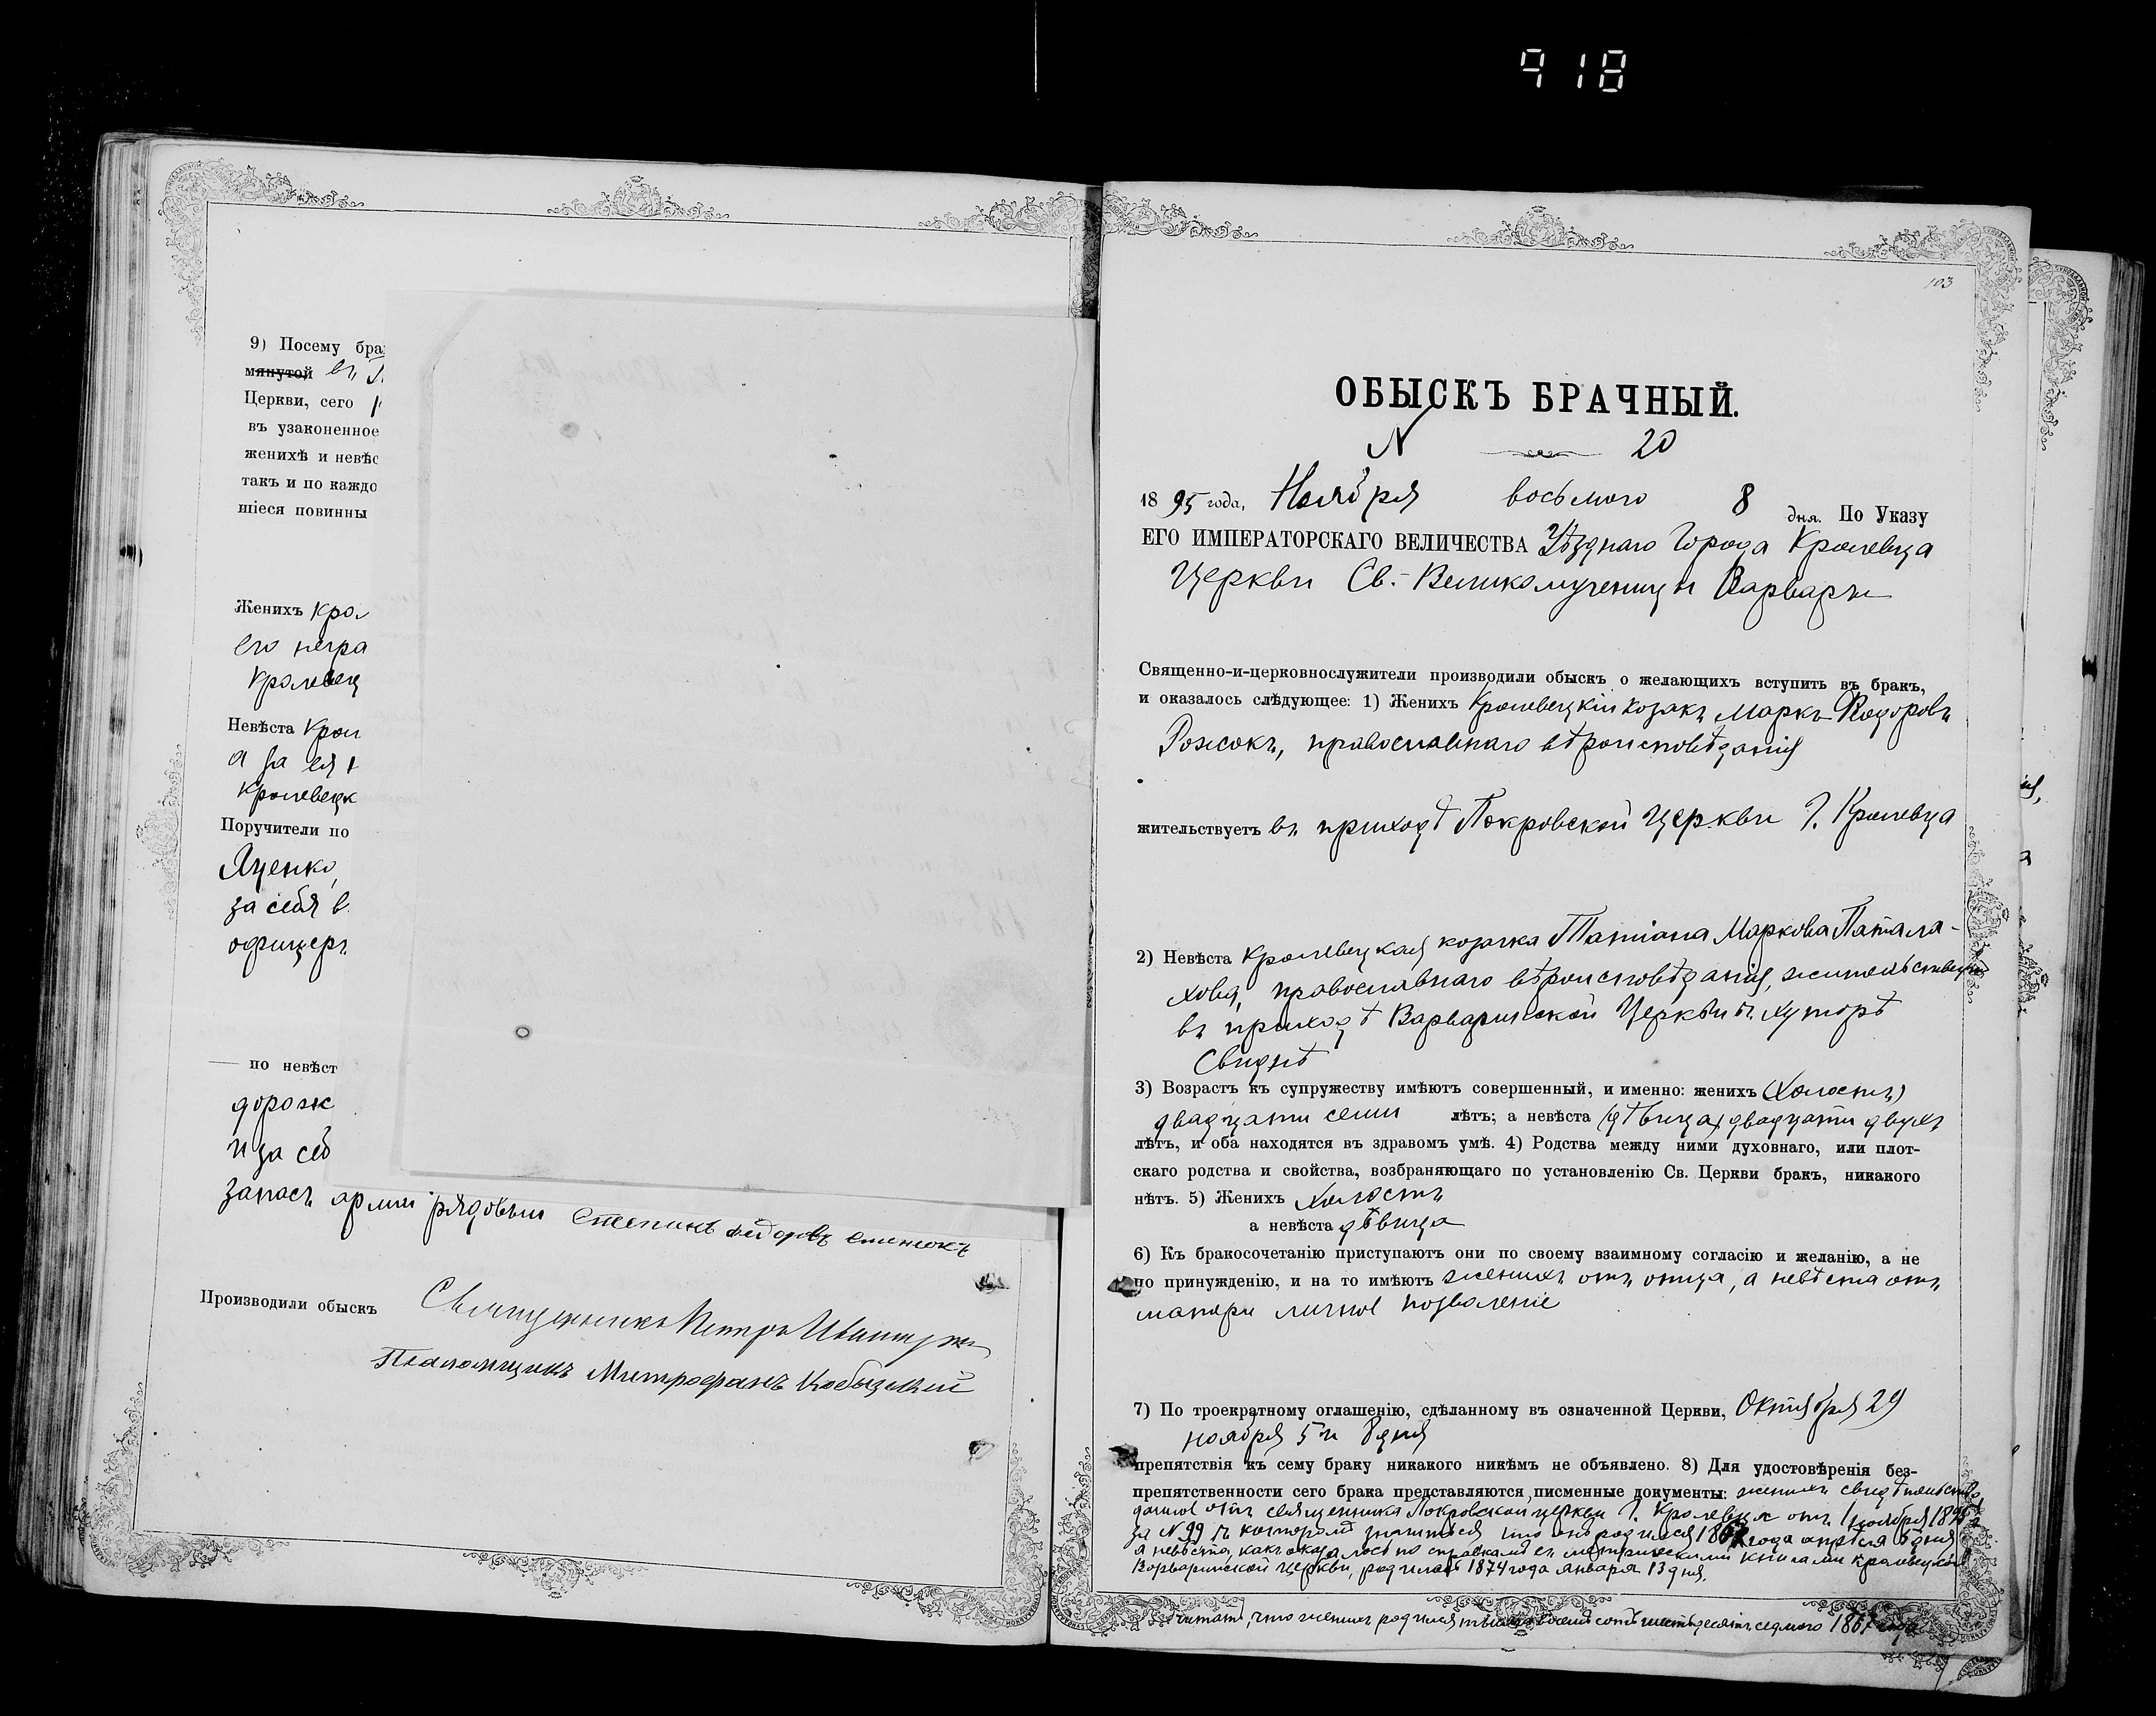 918
9) Посему бра
мянутой въ
Церкви, сего
въ узаконенное
женихѣ и невѣс
такъ и по каждо
шіеся повинны
Женихъ Крол
его негра
Кролевец
Невѣста Крол
а за ея
Кролевецк
Поручители по
Яценко,
за себя в
офицеръ
по невѣст
дорожк
и за себ
запасн арміи рядовый Степанъ Федоровъ
Производили обыскъ Священникъ Петръ
Псаломщикъ Митрофанъ
103
ОБЫСКЪ БРАЧНЫЙ.
N 20
1895 года, Ноября восьмого 8 дня. По Указу
ЕГО ИМПЕРАТОРСКАГО ВЕЛИЧЕСТВА Уѣзднаго Города Кролевца
Церкви Св.- Великомученицы Варвары
Священно-и-церковнослужители производили обыскъ о желающихъ вступить въ бракъ,
и оказалось слѣдующее: 1) Женихъ Кролевецкій козакъ Маркъ Ѳедоровъ
Рожокъ, православнаго вѣроисповѣданія
жительствуетъ въ приходѣ Покровской Церкви Г. Кролевца
2) Невѣста Кролевецкая козачка Татіана Маркова Патала-
хова, православнаго вѣроисповѣданія, жительствуетъ
въ приходѣ Варваринской Церкви въ хуторѣ
Свиднѣ
3) Возрастъ къ супружеству имѣютъ совершенный, и именно: женихъ (Холостъ)
двадцати семи лѣтъ; а невѣста (дѣвица) двадцати двухъ
лѣтъ, и оба находятся въ здравомъ умѣ. 4) Родства между ними духовнаго, или плот-
скаго родства и свойства, возбраняющаго по установленію Св. Церкви бракъ, никакого
нѣтъ. 5) Женихъ Холостъ
а невѣста дѣвица
6) Къ бракосочетанію приступаютъ они по своему взаимному согласію и желанію, а не
по принужденію, и на то имѣютъ женихъ отъ отца, а невѣста отъ
матери личное позволеніе
7) По троекратному оглашенію, сдѣланному въ означенной Церкви, Октября 29
ноября 5 и 8 дня
препятствія къ сему браку никакого никѣмъ не объявлено. 8) Для удостовѣренія без-
препятственности сего брака представляются писменные документы: женихъ свидѣтельство
данное отъ священника Покровской церкви Г. Кролевца отъ 1 ноября 1895 г.
за N 99 въ которомъ значится что онъ родился 1867 года апрѣля 5 дня
а невѣста, какъ оказалось по справкамъ съ метрическими книгами Кролевецкой
Варваринской церкви, родилась 1874 года января 13 дня.
Читать, что женихъ родился тысяча восемь сотъ шестьдесятъ седмого 1867 года